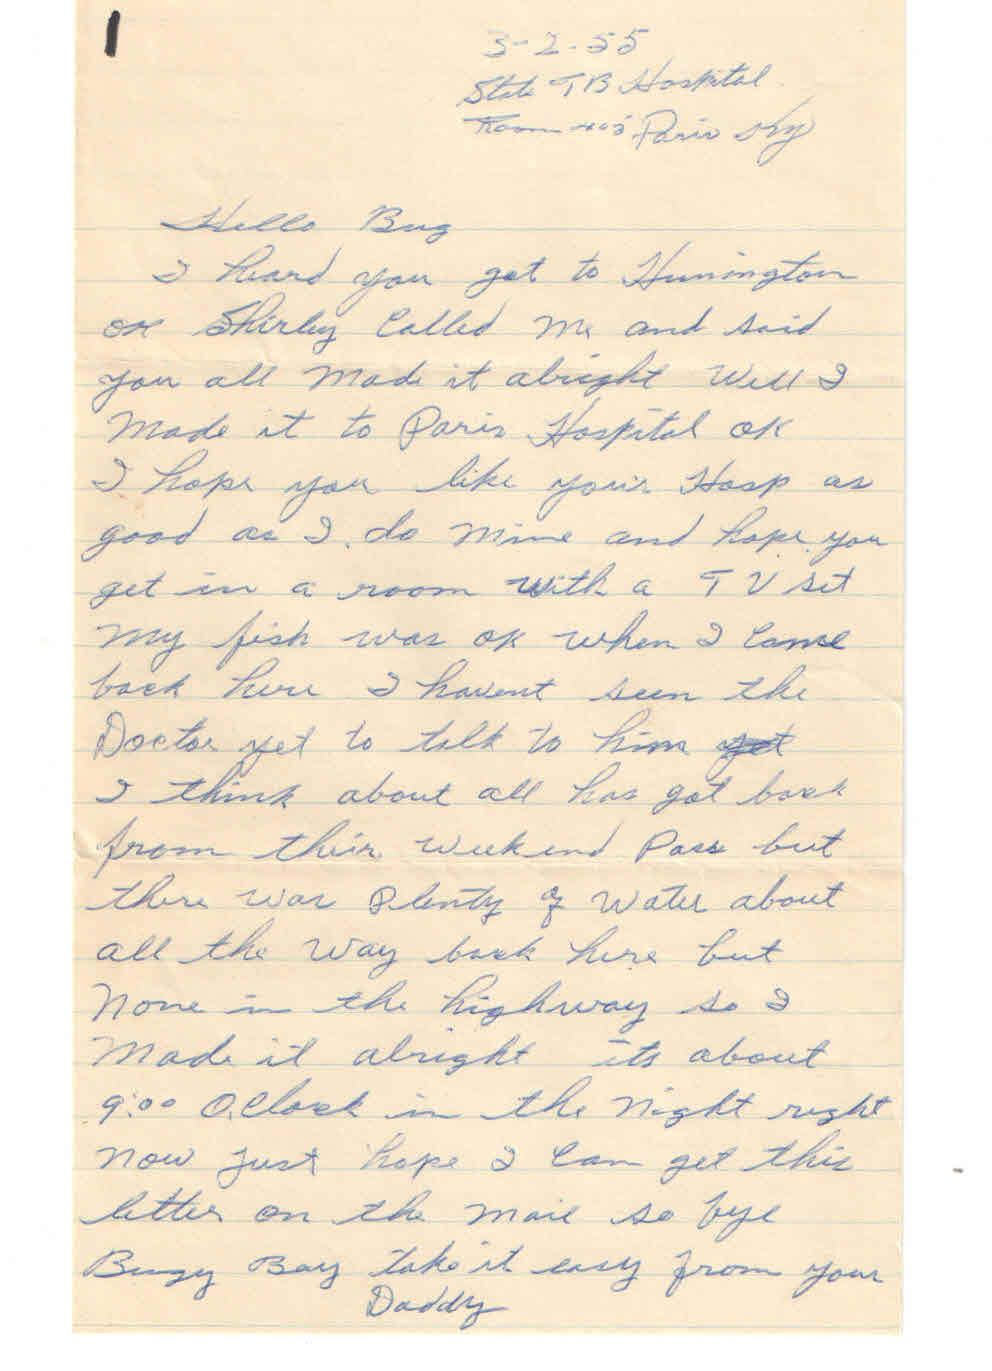 1
3-2-55
State TB Hospital
Room 405 Paris Ky
Hello Bug
I heard you got to Hunington
OK Shirley Called Me and said
you all Made it alright Well I
Made it to Paris Hospital OK
I hope you like your Hosp as
good as I do Mine and hope you
get in a room with a TV set
My fish was OK when I Came
back here I havent seen the
Doctor yet to talk to him
I think about all has got back
from their weekend Pass but
there was Plenty of Water about
all the Way back here but
None in the highway so I
Made it alright its about
9:00 O,Clock in the Night right
Now Just hope I Can get this
letter on the Mail so bye
Bugy Boy take it easy from your
Daddy